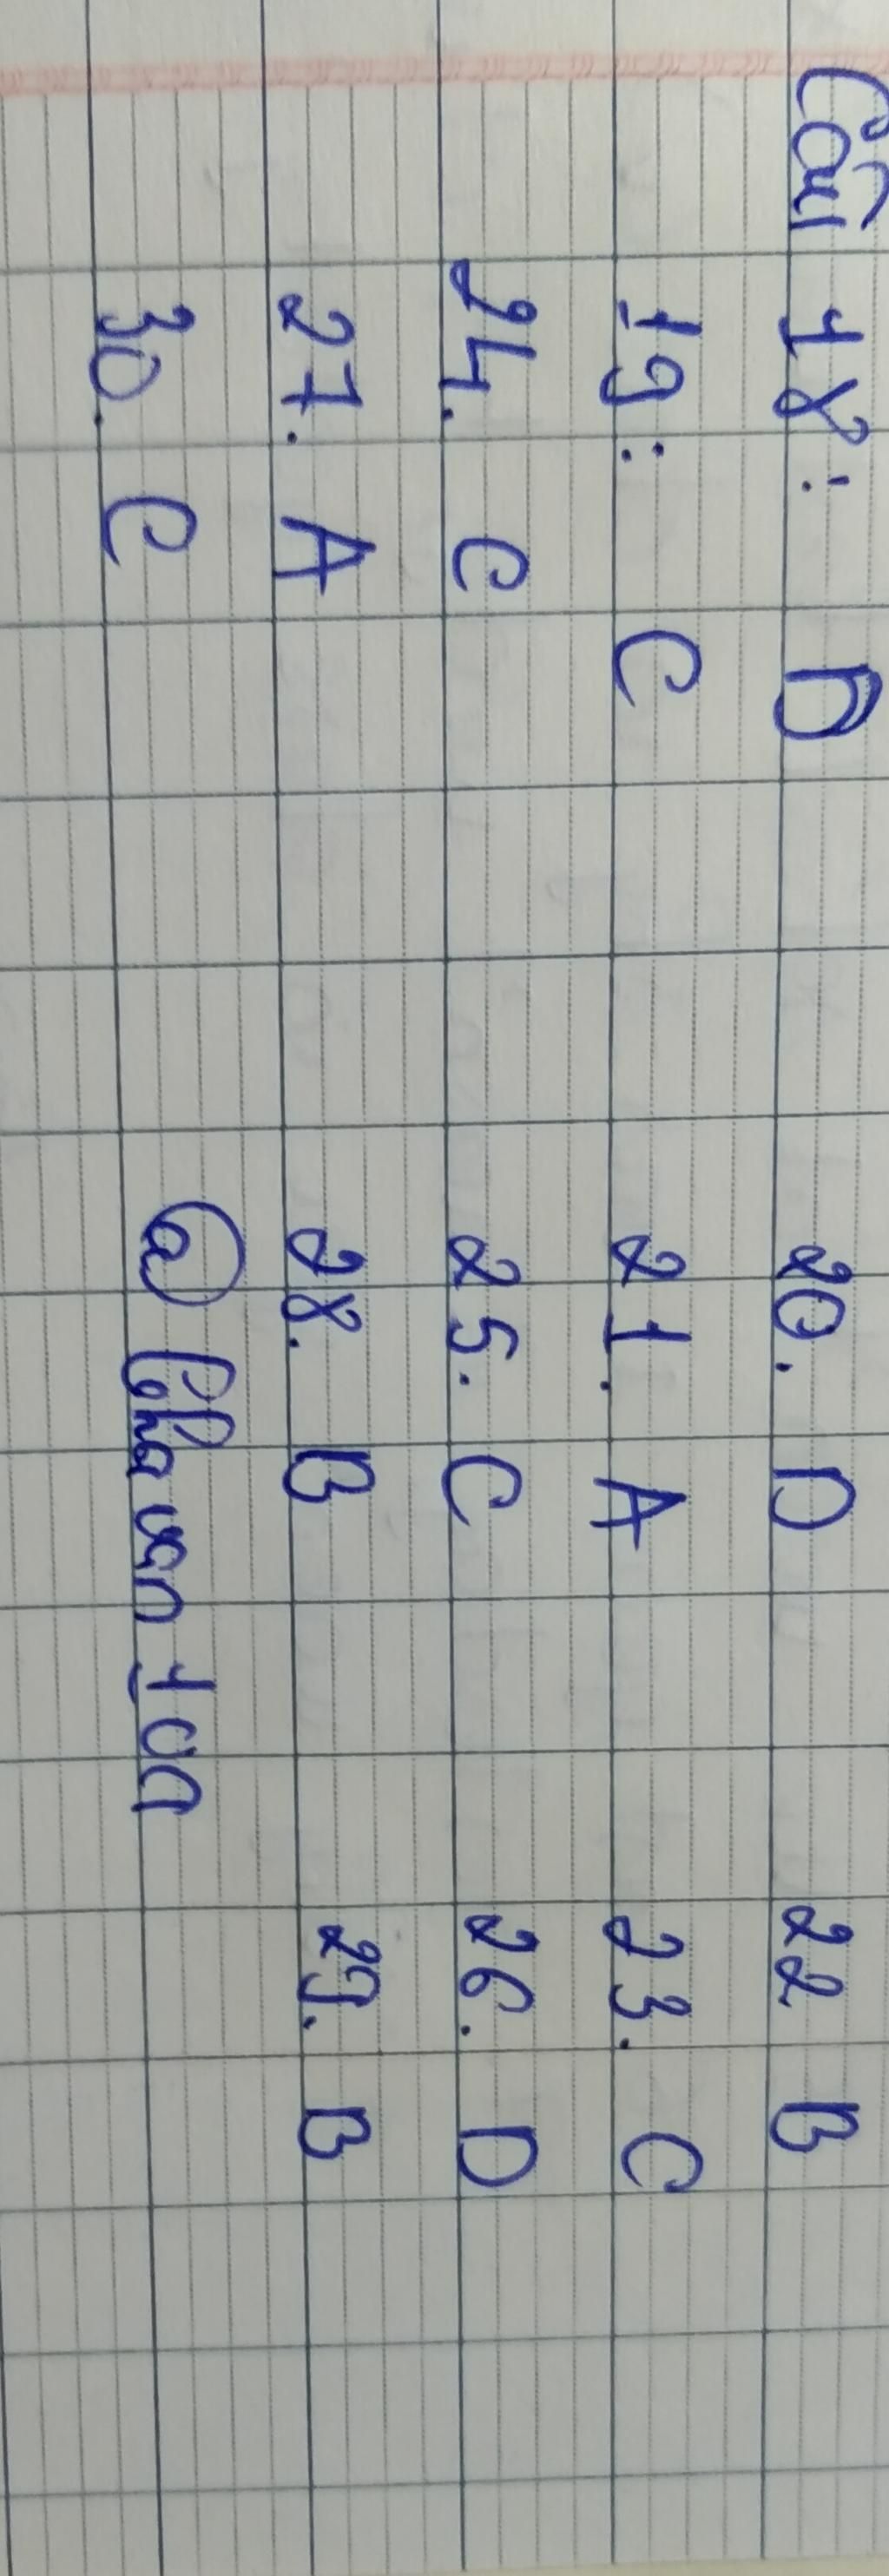 Câu 18: D 20. D 22 B
19: C 21. A 23. C
24. C 25. C 26. D
27. A 28. B 29. B
30. C